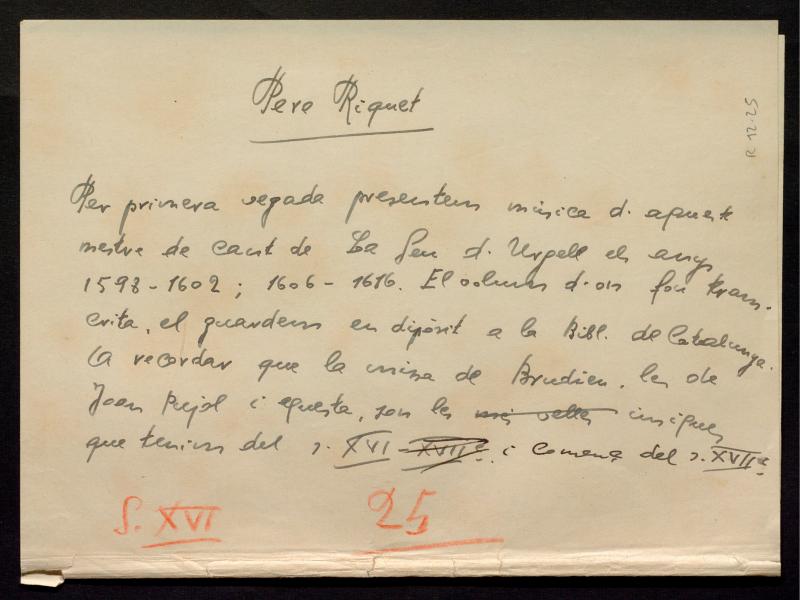 Pere Riquet
R 12-25
Per primera vegada presentem música d. aquest
mestre de cant de La Seu d. Urgell els anys
1598-1602; 1606-1616. El volum d.on fou trans-
crita, el guardem en dipòsit a la Bibl. de Catalunya.
A recordar que la missa de Brudieu, les de
Joan Pujol i aquesta, son les més velles insignes
que tenim del s. XVI - XVIIè. i començ del s. XVIIè
S. XVI
25